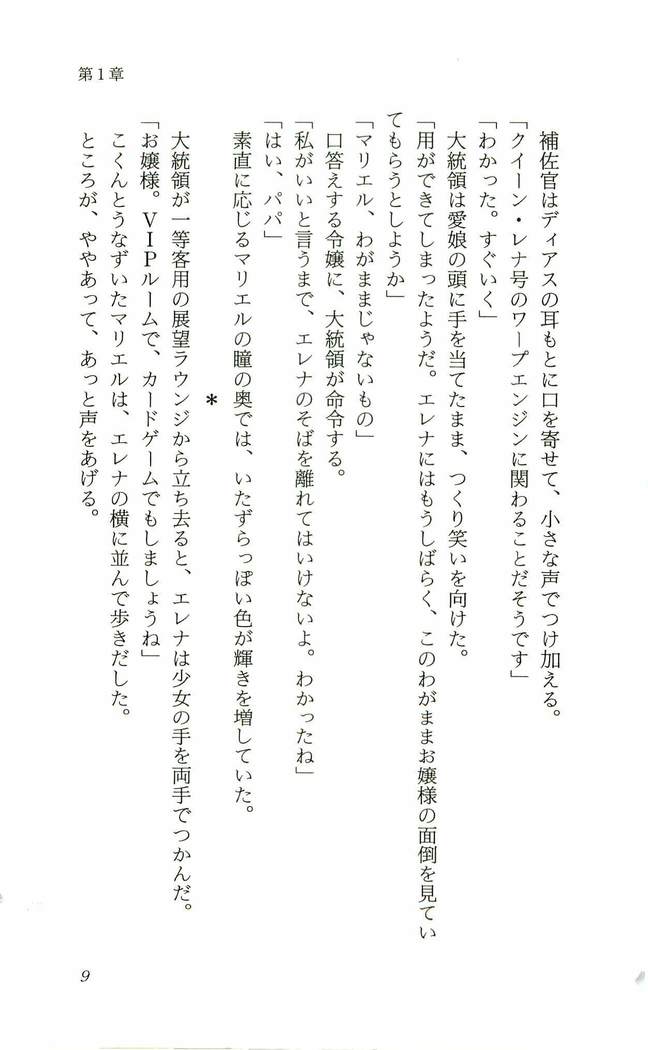 第1章
補佐官はディアスの耳もとに口を寄せて、小さな声でつけ加える。
「クイーン・レナ号のワープエンジンに関わることだそうです」
「わかった。すぐいく」
大統領は愛娘の頭に手を当てたまま、つくり笑いを向けた。
「用ができてしまったようだ。エレナにはもうしばらく、このわがままお嬢様の面倒を見てい
てもらうとしようか」
「マリエル、わがままじゃないもの」
口答えする令嬢に、大統領が命令する。
「私がいいと言うまで、エレナのそばを離れてはいけないよ。わかったね」
「はい、パパ」
素直に応じるマリエルの瞳の奥では、いたずらっぽい色が輝きを増していた。
*
大統領が一等客用の展望ラウンジから立ち去ると、エレナは少女の手を両手でつかんだ。
「お嬢様。VIPルームで、カードゲームでもしましょうね」
こくんとうなずいたマリエルは、エレナの横に並んで歩きだした。
ところが、ややあって、あっと声をあげる。
9